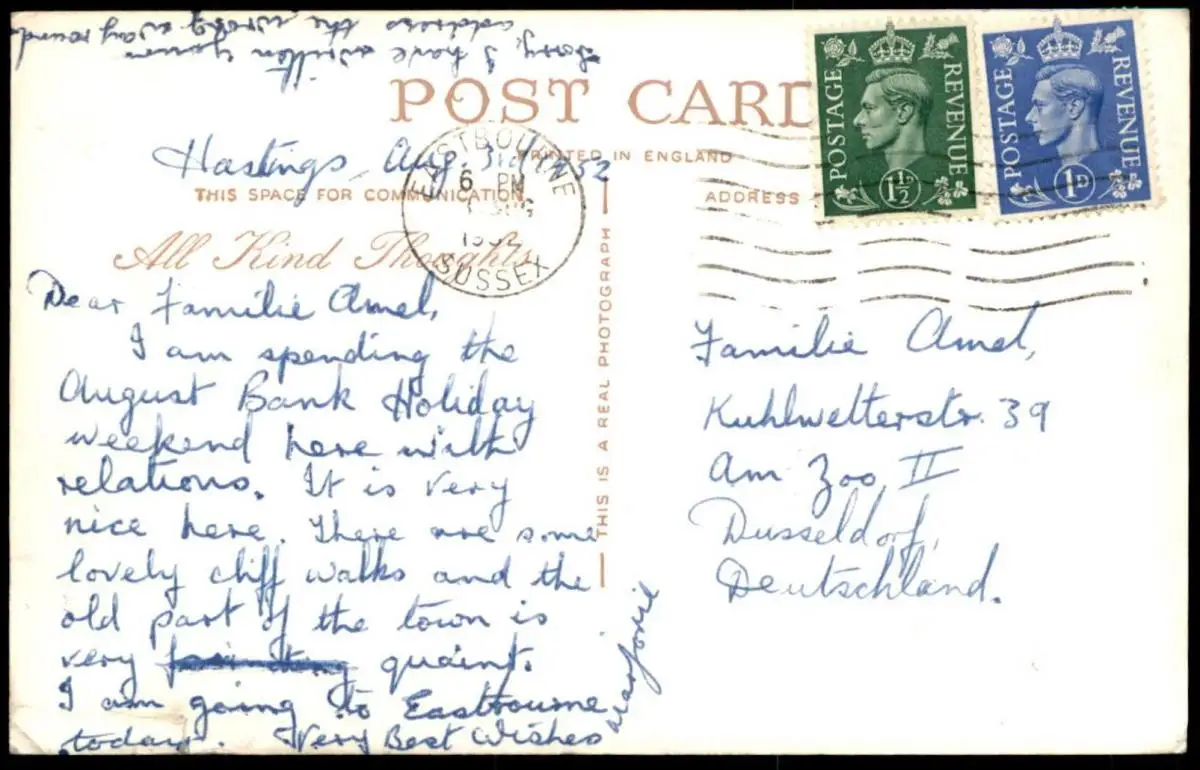 Sorry, I have written your
address the wrong way round
POST CARD
PRINTED IN ENGLAND
Hastings, Aug. 3rd 1952
THIS SPACE FOR COMMUNICATION
ADDRESS
All Kind Thoughts
EASTBOURNE
6 PM
AUG
1952
SUSSEX
POSTAGE REVENUE
1½D
POSTAGE REVENUE
1D
Dear Familie Amel,
I am spending the
August Bank Holiday
weekend here with
relations. It is very
nice here. There are some
lovely cliff walks and the
old part of the town is
very quaint.
I am going to Eastbourne
today. Very Best Wishes
Marjorie
THIS IS A REAL PHOTOGRAPH
Familie Amel,
Kuhlwetterstr. 39
Am Zoo, II
Dusseldorf,
Deutschland.